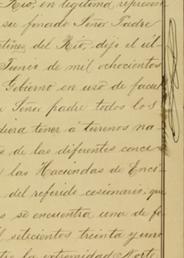 Rio, en legítima represen
su finado Señor Padre
tinez del Rio, dejo el úl
Junio de mil ochocientos
Gobierno en uso de facul
Señor padre todos los
diera tener á terrenos na
de las diferentes conce
las Haciendas de Enci
del referido cesionario, que
se encuentra una de fo
setecientos treinta y uno
la extremidad Norte